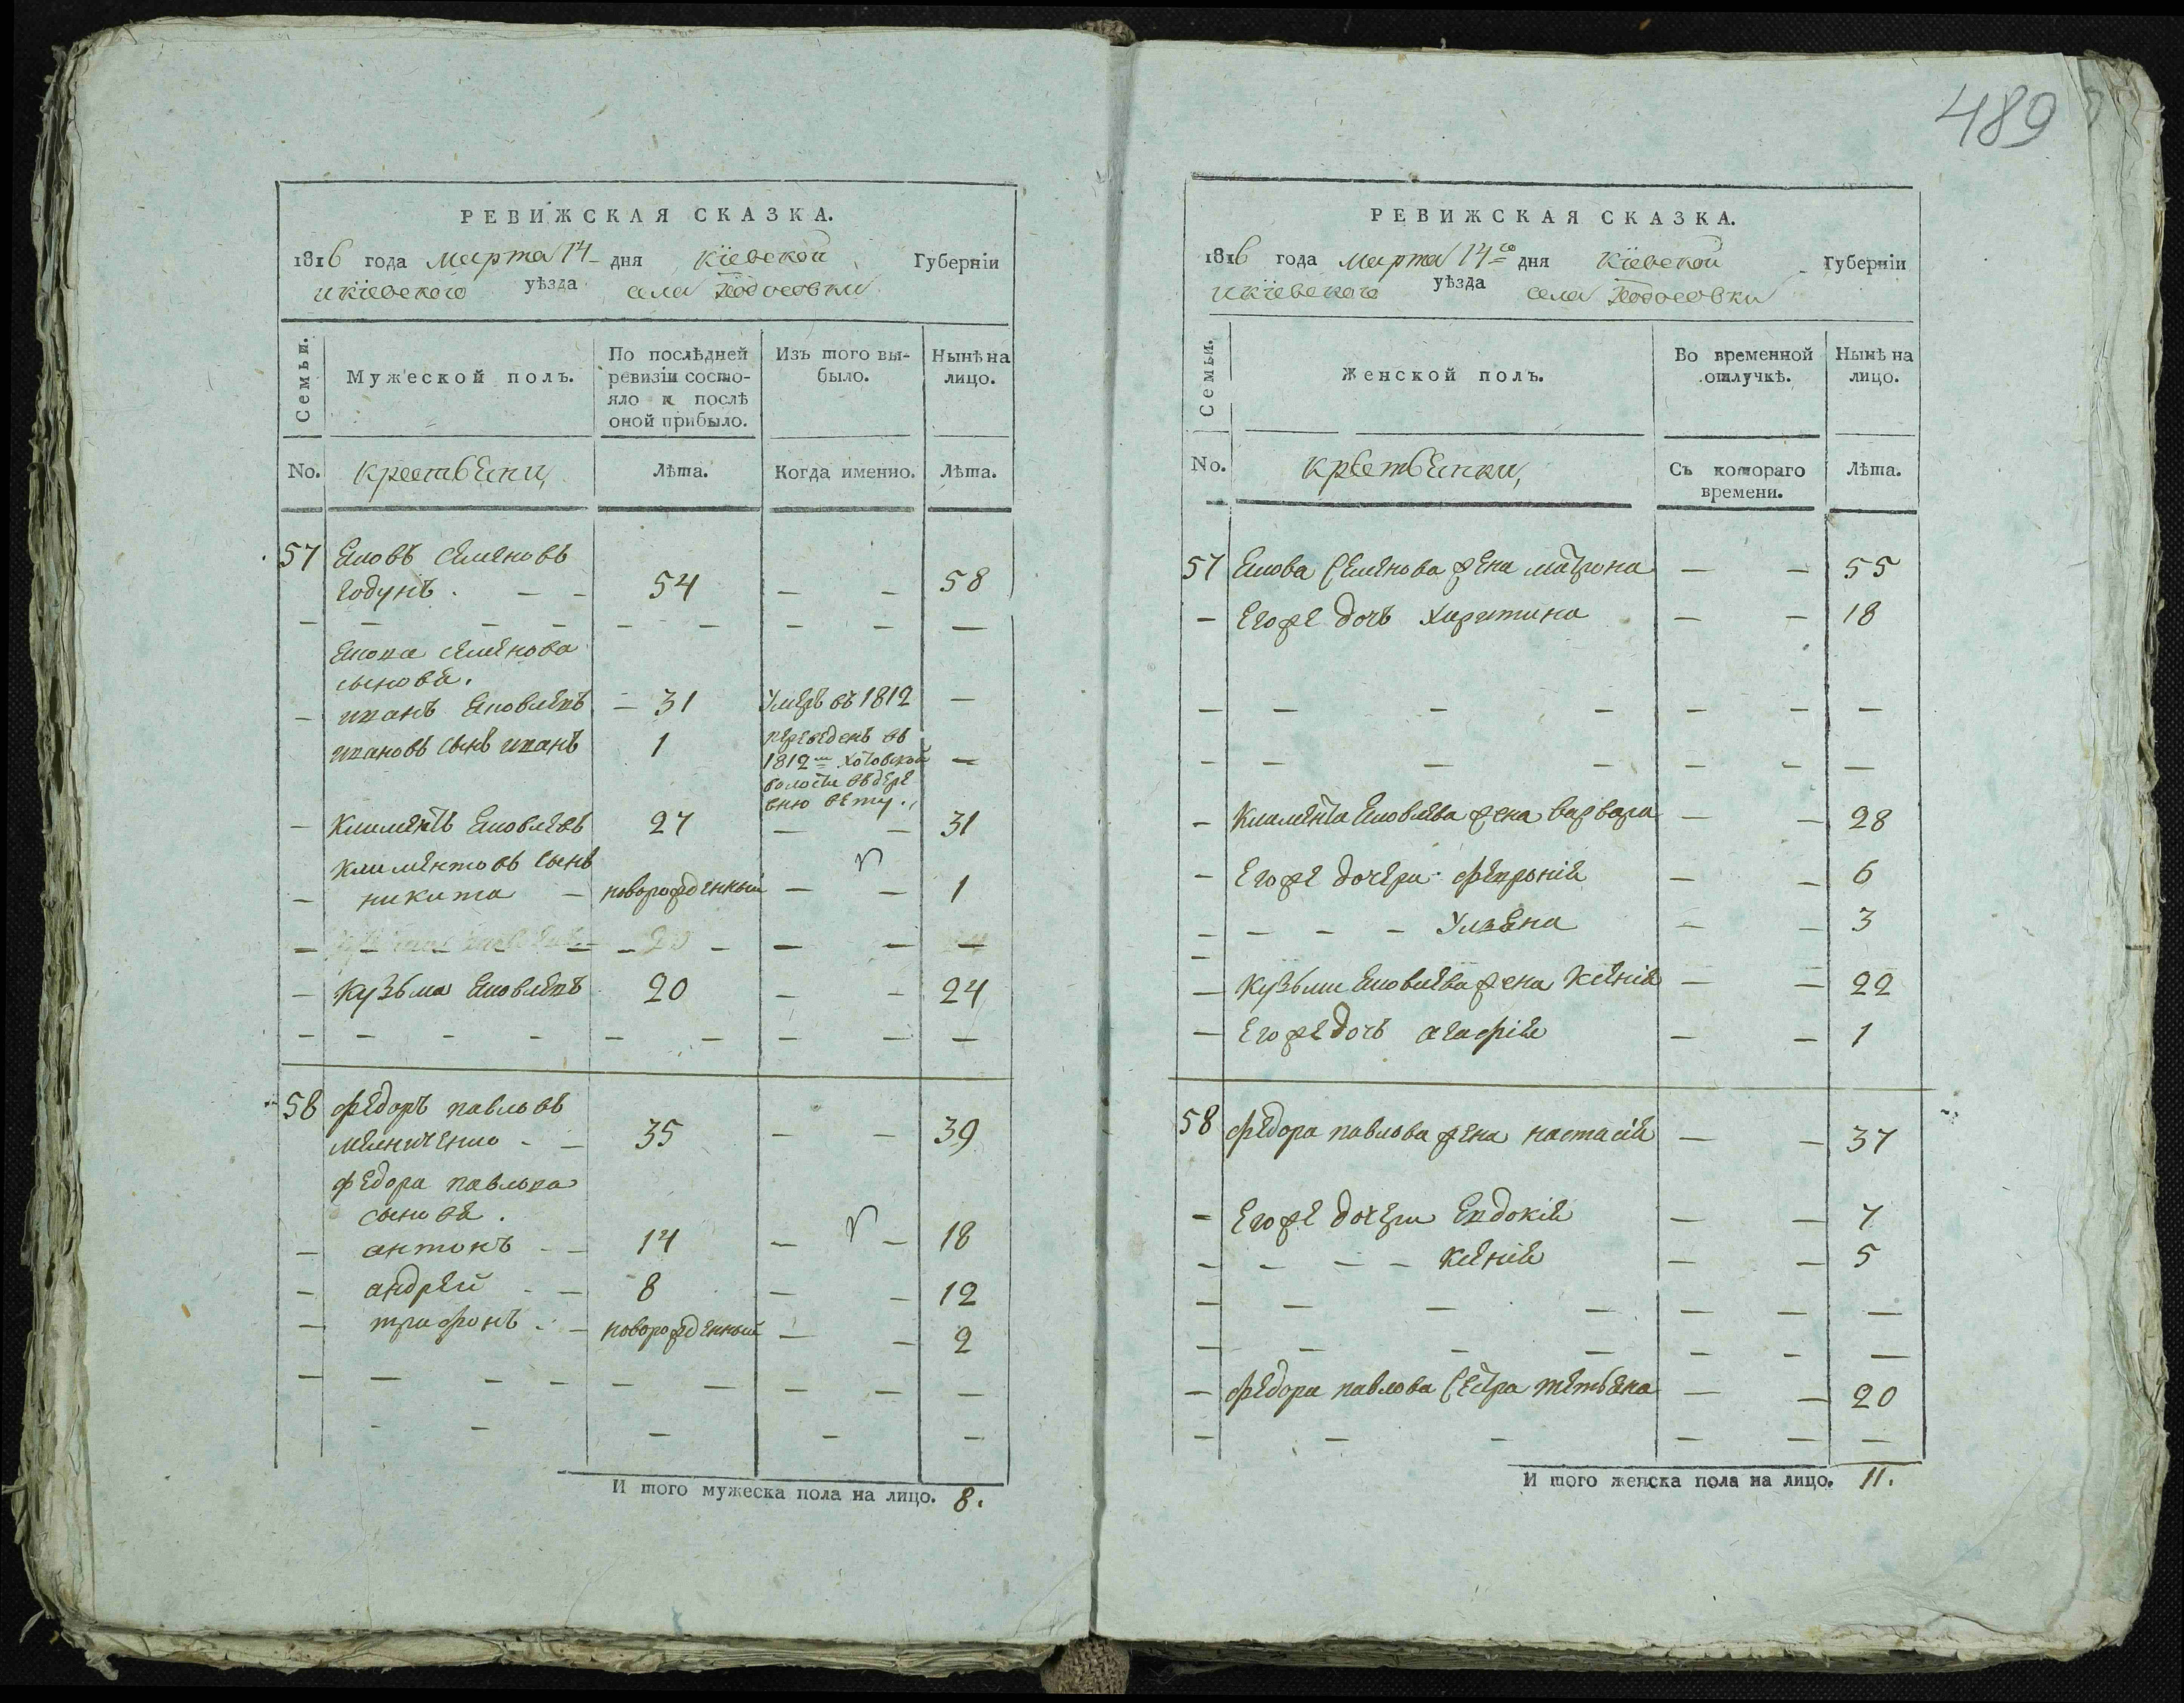 489
РЕВИЖСКАЯ СКАЗКА.
1816 года марта 14 дня Кіевской Губерніи
Икіевского уѣзда села Ходосовки
Семьи.
Мужеской полъ.
По послѣдней ревизіи состо-
яло и послѣ
оной прибыло.
Изъ того вы-
было.
Нынѣ на
лицо.
No. крестьяни, Лѣта. Когда именно. Лѣта.
57 Яковъ Семеновъ
Годунъ. — — 54 — — 58
Якова Семенова
сыновя.
— Иванъ Яковлевъ — 31 Умеръ въ 1812 —
Ивановъ сынъ Иванъ 1 переведенъ въ
1812м Хотовской —
волости въ дере
вню Вету.
— Климентъ Яковлевъ 27 — — 31
Климентовъ сынъ
— никита — новорожденный — — 1
— Кузьма Яковлевъ 20 — — 24
58 Федоръ павловъ
мелниченко — — 35 — — 39
федора павлова
сыновя.
— антонъ — — 14 — — 18
— андрей — — 8 — — 12
— трифонъ — новорожденный — — 2
И того мужеска пола на лицо. 8.
РЕВИЖСКАЯ СКАЗКА.
1816 года марта 14го дня Кіевской Губерніи
Икіевского уѣзда села Ходосовки
Семьи.
Женской полъ.
Во временной
отлучкѣ.
Нынѣ на
лицо.
No. крестьянки, Съ котораго
времени. Лѣта.
57 Якова Семенова жена матрона — — 55
— Его же дочь Харитина — — 18
— Климента Яковлева жена варвара — — 28
— Его же дочери Февронія — — 6
— — — — Уляна — — 3
— Кузьми Яковлева жена Ксенія — — 22
— Его же дочь агафія — — 1
58 федора павлова жена настасія — — 37
— Его же дочери Евдокія — — 7
— — — — Ксенія — — 5
— федора павлова сестра тетьяна — — 20
И того женска пола на лицо. 11.